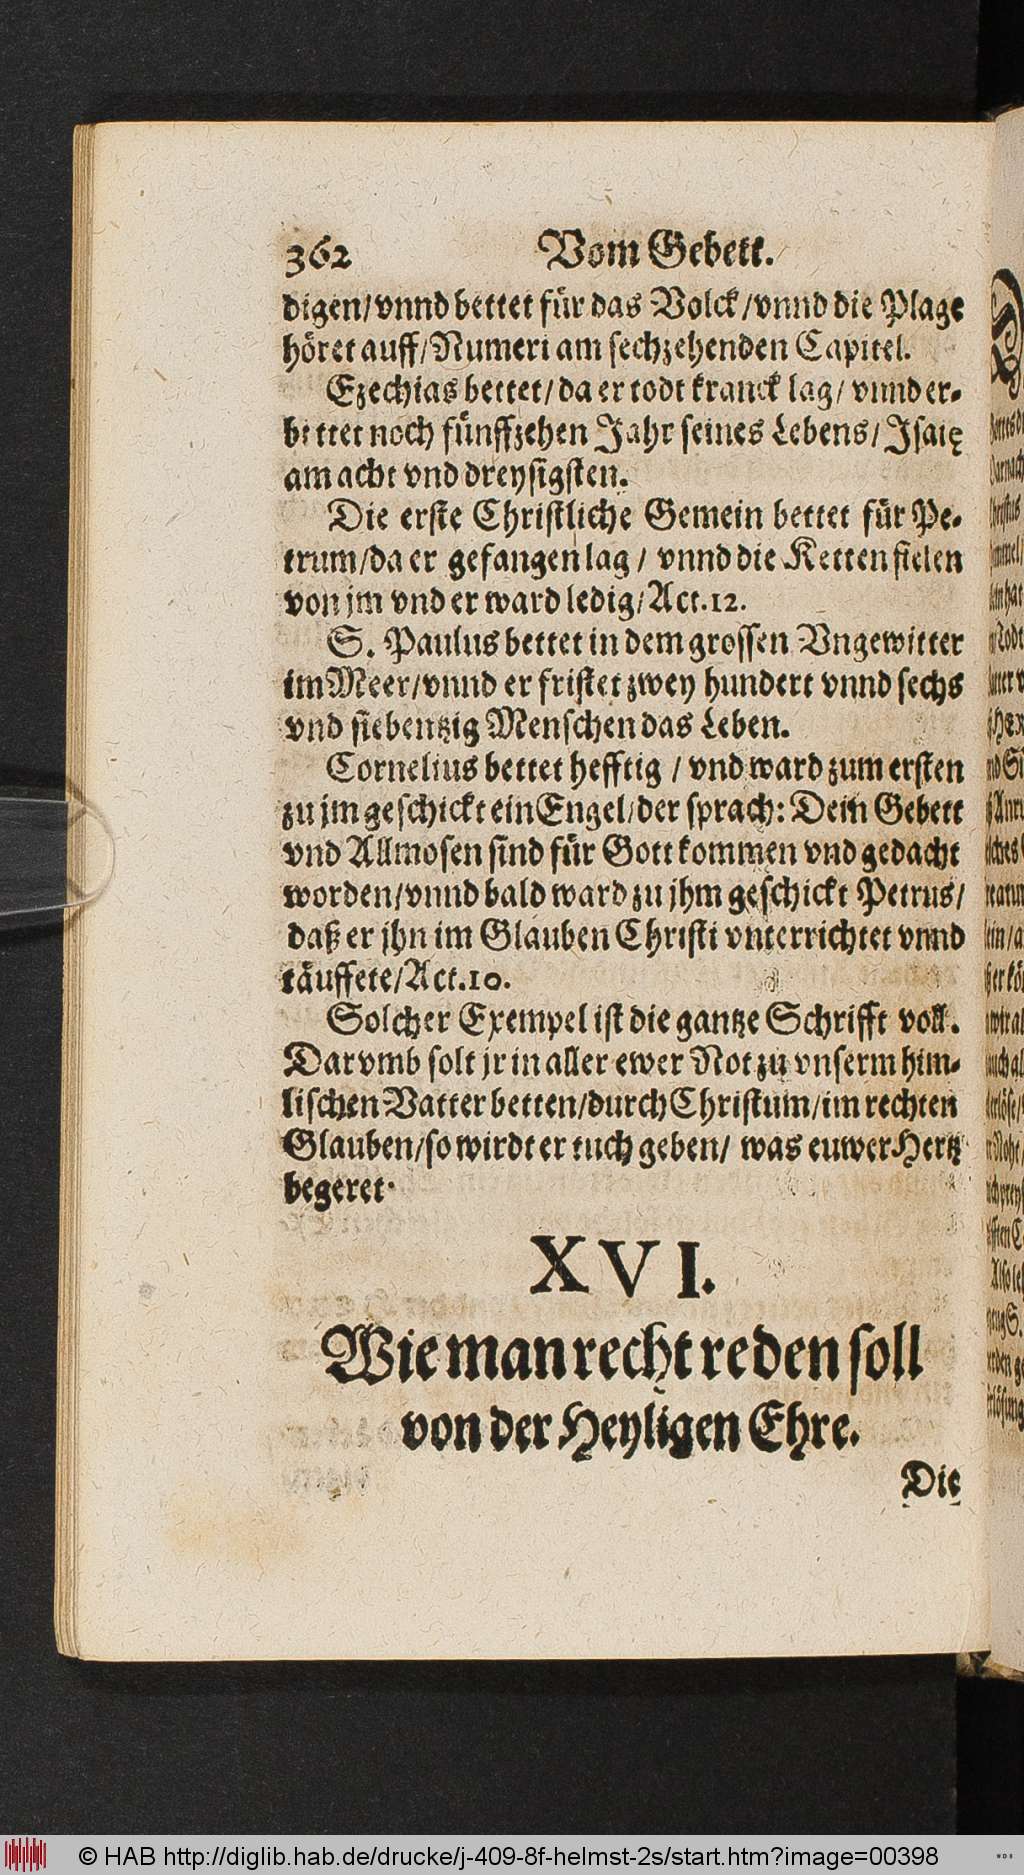 362 Vom Gebett.
digen/vnnd bettet für das Volck/vnnd die Plage
höret auff/Numeri am sechzehenden Capitel.
Ezechias bettet/da er todt kranck lag/vnnd er-
bettet noch fünffzehen Jahr seines Lebens/Jsaię
am acht vnd dreysigsten.
Die erste Christliche Gemein bettet für Pe-
trum/da er gefangen lag/vnnd die Ketten fielen
von jm vnd er ward ledig/Act.12.
S. Paulus bettet in dem grossen Vngewitter
im Meer/vnnd er fristet zwey hundert vnnd sechs
vnd siebentzig Menschen das Leben.
Cornelius bettet hefftig/vnd ward zum ersten
zu jm geschickt ein Engel/der sprach: Dein Gebett
vnd Allmosen sind für Gott kommen vnd gedacht
worden/vnnd bald ward zu jhm geschickt Petrus/
daß er jhn im Glauben Christi vnterrichtet vnnd
täuffete/Act.10.
Solcher Exempel ist die gantze Schrifft voll.
Darvmb solt jr in aller ewer Not zu vnserm him-
lischen Vatter betten/durch Christum/im rechten
Glauben/so wirdt er euch geben/was euwer Hertz
begeret.
XVI.
Wie man recht reden soll
von der Heyligen Ehre.
Die
© HAB http://diglib.hab.de/drucke/j-409-8f-helmst-2s/start.htm?image=00398